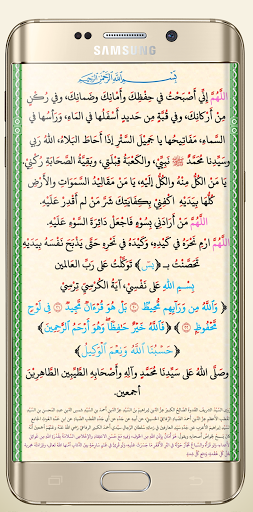 SAMSUNG
بِسْمِ اللهِ الرَّحْمٰنِ الرَّحِيمِ
اللَّهُمَّ إِنِّي أَصْبَحْتُ فِي حِفْظِكَ وَأَمَانِكَ وَضَمَانِكَ، وَفِي رُكْنٍ
مِنْ أَرْكَانِكَ، وَفِي قُبَّةٍ مِنْ حَدِيدٍ أَسْفَلُهَا فِي المَاءِ، وَرَأْسُهَا فِي
السَّمَاءِ، مَفَاتِيحُهَا يَا جَمِيلَ السَّتْرِ إِذَا أَحَاطَ البَلَاءُ، اللهُ رَبِّي
وَسَيِّدُنَا مُحَمَّدٌ ﷺ نَبِيِّي، وَالكَعْبَةُ قِبْلَتِي، وَبَقِيَّةُ الصَّحَابَةِ رُكْنِي،
يَا مَنْ الكُلُّ مِنْهُ وَالكُلُّ إِلَيْهِ، يَا مَنْ مَقَالِيدُ السَّمَوَاتِ وَالأَرْضِ
كُلُّهَا بِيَدَيْهِ اكْفِنِي بِكِفَايَتِكَ شَرَّ مَنْ لَم أَقْدِر عَلَيْهِ.
اللَّهُمَّ مَنْ أَرَادَنِي بِسُوءٍ فَاجْعَلْ دَائِرَةَ السَّوْءِ عَلَيْهِ.
اللَّهُمَّ ارْمِ نَحْرَهُ فِي كَيْدِهِ، وَكَيْدَهُ فِي نَحْرِهِ حَتَّى يَذْبَحَ نَفْسَهُ بِيَدَيْهِ
تَحَصَّنْتُ بـ ﴿يس﴾ تَوَكَّلْتُ عَلَى رَبِّ العَالَمِين
بِسْمِ اللهِ عَلَى نَفْسِي، آيَةُ الكُرْسِيِّ تِرْسِي
﴿وَاللَّهُ مِن وَرَائِهِم مُّحِيطٌ ۝ بَلْ هُوَ قُرْءَانٌ مَّجِيدٌ ۝ فِي لَوْحٍ
مَّحْفُوظٍ ۝﴾ ﴿فَاللَّهُ خَيْرٌ حَافِظًا وَهُوَ أَرْحَمُ الرَّاحِمِينَ﴾
﴿حَسْبُنَا اللَّهُ وَنِعْمَ الْوَكِيلُ﴾
وَصَلَّى اللهُ عَلَى سَيِّدِنَا مُحَمَّدٍ وَآلِهِ وَأَصْحَابِهِ الطَّيِّبِينَ الطَّاهِرِينَ
أجمعين.